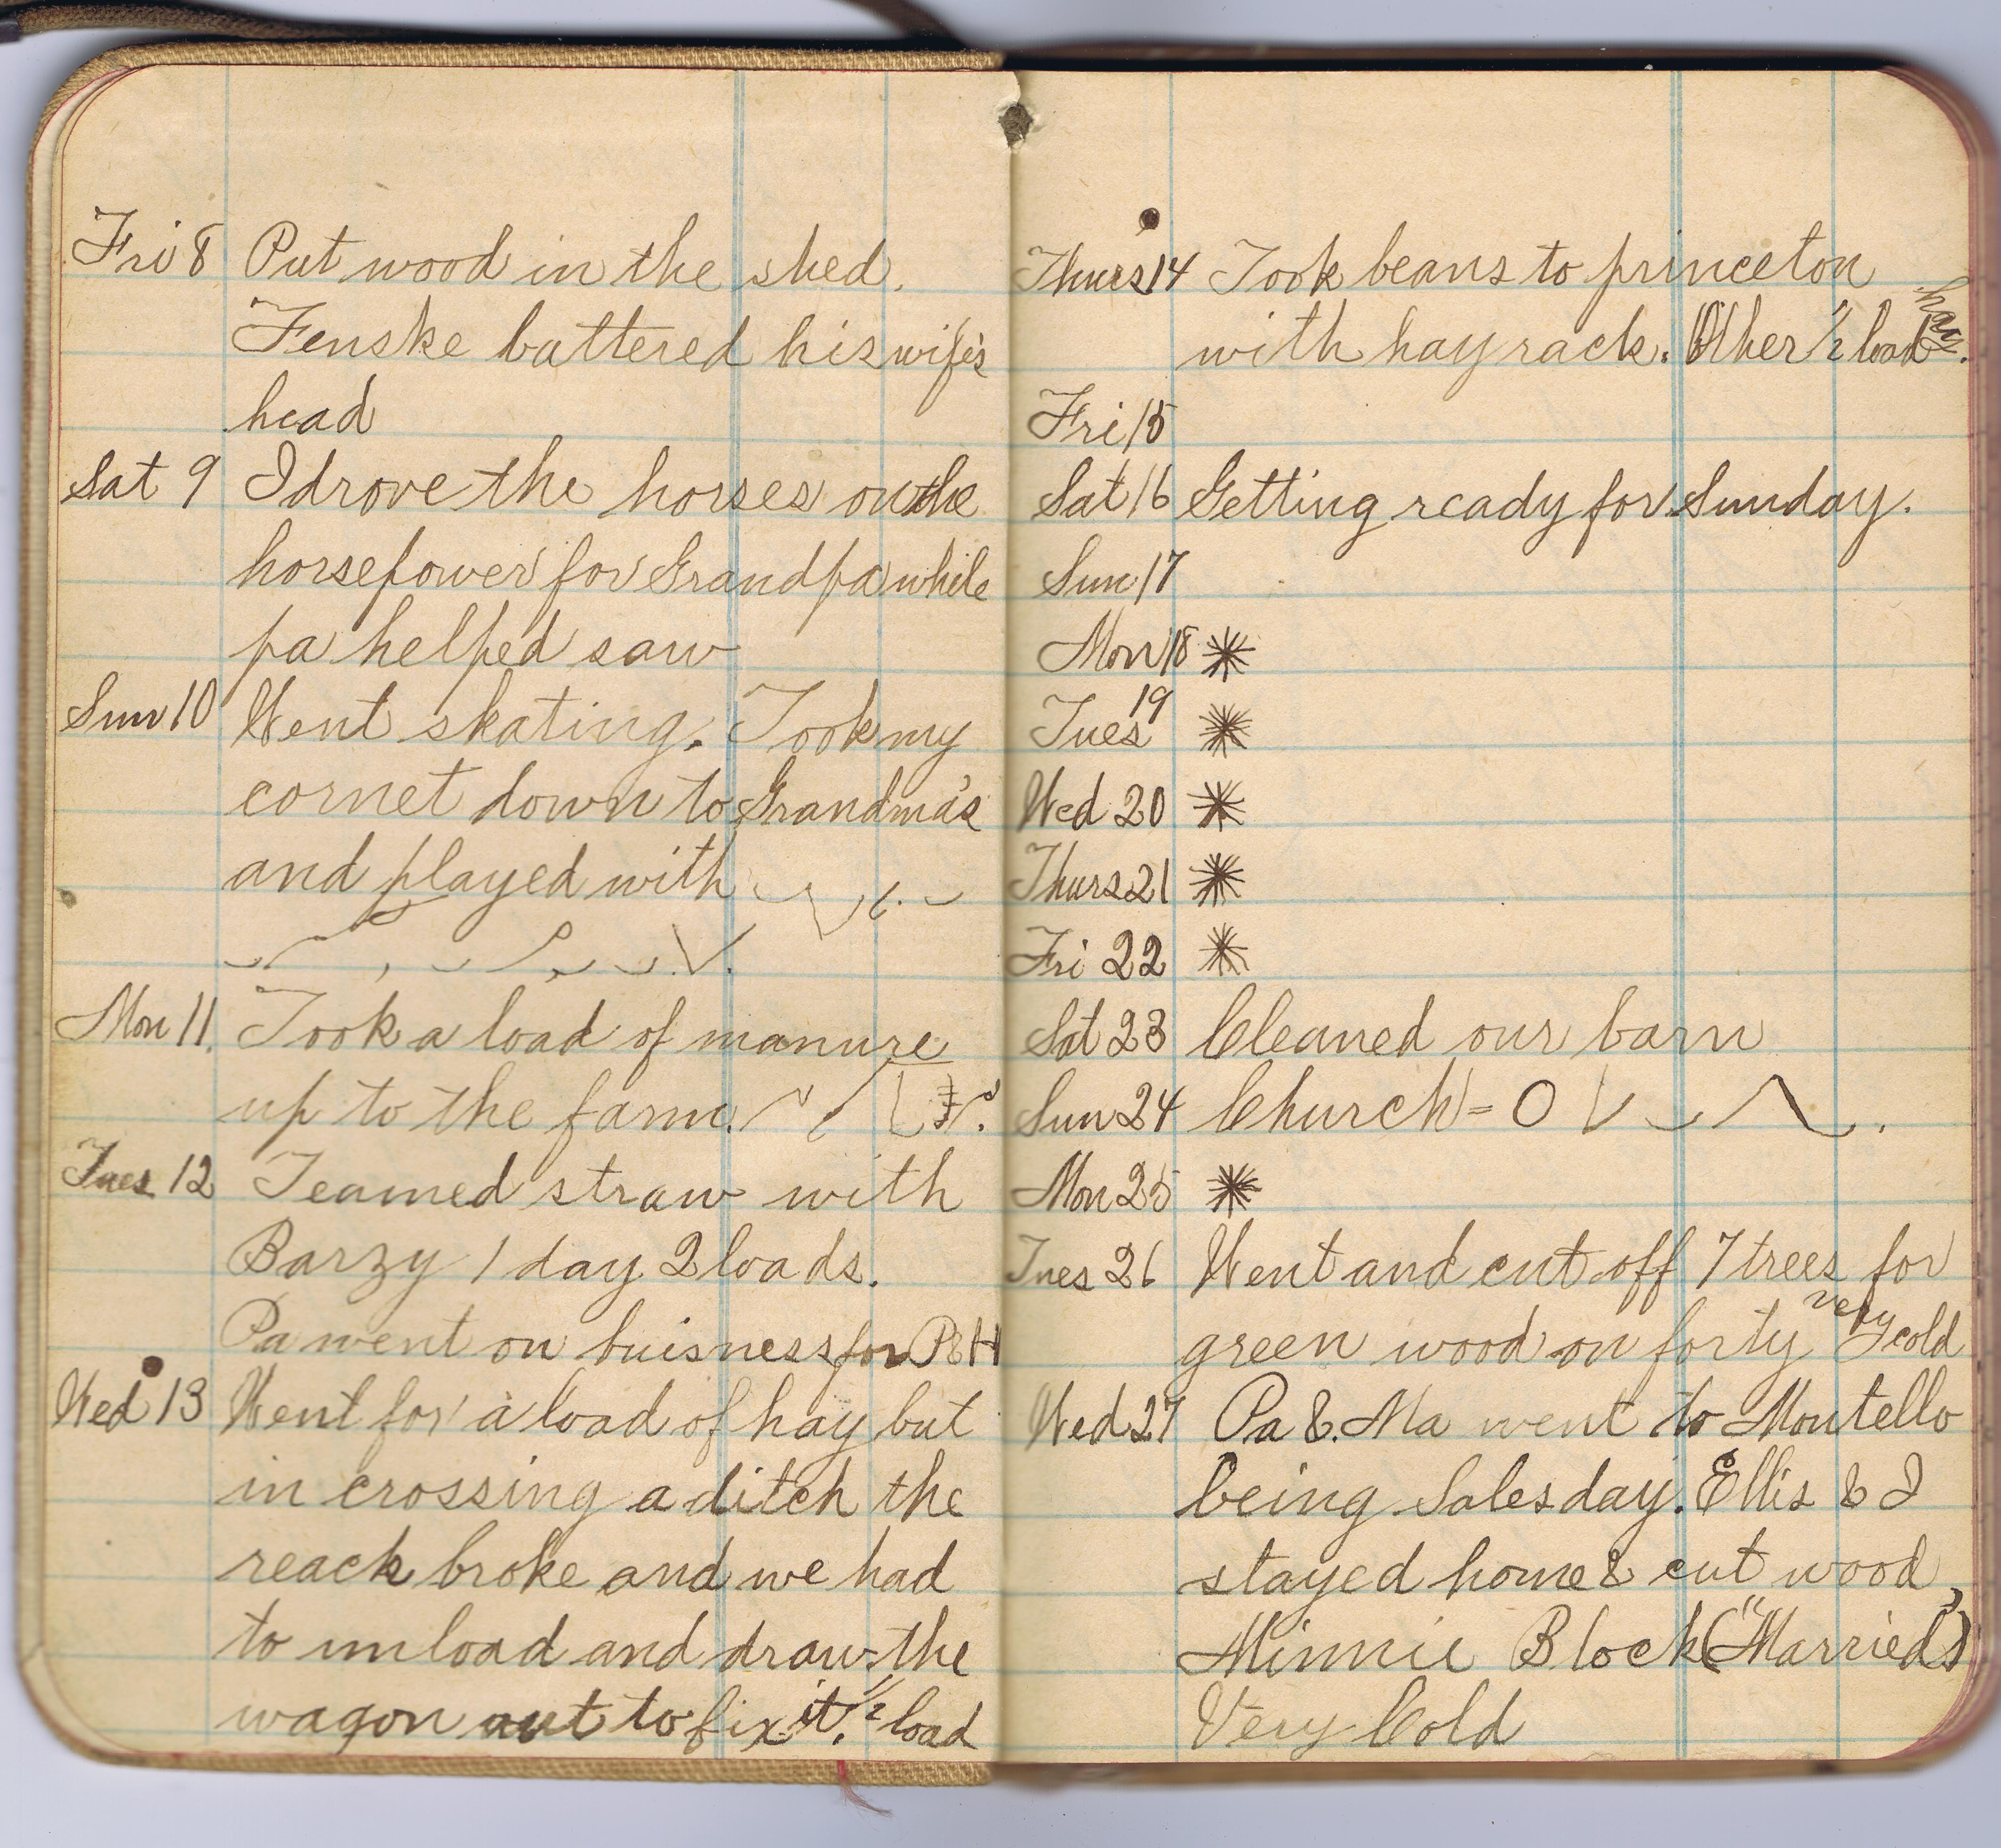 Fri 8 Put wood in the shed.
Fenske battered his wife's
head
Sat 9 I drove the horses on the
horsepower for Grandpa while
pa helped saw
Sun 10 Went skating. Took my
cornet down to Grandma's
and played with
Mon 11. Took a load of manure
up to the farm.
Tues 12 Teamed straw with
Barzy 1 day 2 loads.
Pa went on buisness for P&H
Wed 13 Went for a load of hay but
in crossing a ditch the
reach broke and we had
to unload and draw the
wagon out to fix it. 1/2 load
Thurs 14 Took beans to princeton
with hay rack. Other 1/2 load hay.
Fri 15
Sat 16 Getting ready for Sunday.
Sun 17
Mon 18 *
Tues 19 *
Wed 20 *
Thurs 21 *
Fri 22 *
Sat 23 Cleaned our barn
Sun 24 Church =
Mon 25 *
Tues 26 Went and cut off 7 trees for
green wood on forty very cold
Wed 27 Pa & Ma went to Montello
being Salesday. Ellis & I
stayed home & cut wood,
Minnie Block ("Married")
Very Cold